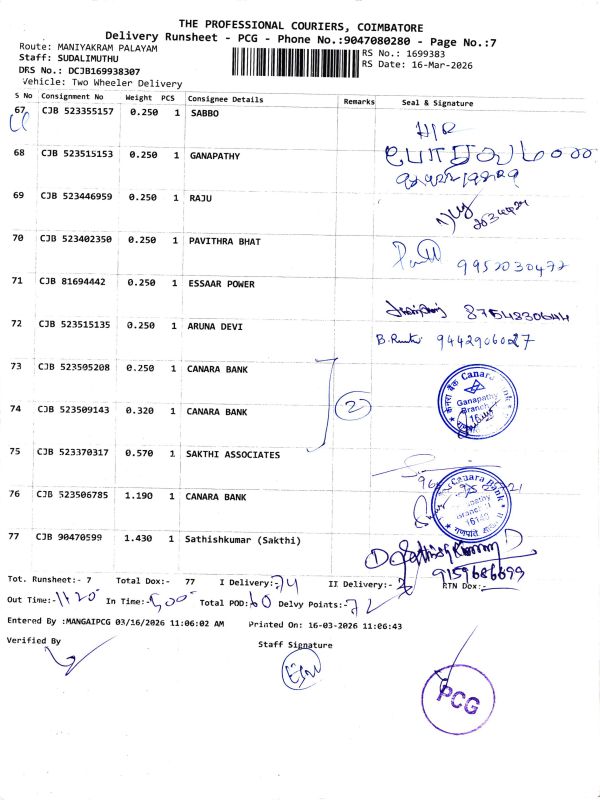 THE PROFESSIONAL COURIERS, COIMBATORE
Delivery Runsheet - PCG - Phone No.:9047080280 - Page No.:7
Route: MANIYAKRAM PALAYAM
RS No.: 1699383
Staff: SUDALIMUTHU
RS Date: 16-Mar-2026
DRS No.: DCJB169938307
Vehicle: Two Wheeler Delivery
S No Consignment No Weight PCS Consignee Details Remarks Seal & Signature
67 CJB 523355157 0.250 1 SABBO
H/R
68 CJB 523515153 0.250 1 GANAPATHY
69 CJB 523446959 0.250 1 RAJU
70 CJB 523402350 0.250 1 PAVITHRA BHAT
9952030472
71 CJB 81694442 0.250 1 ESSAAR POWER
72 CJB 523515135 0.250 1 ARUNA DEVI
73 CJB 523505208 0.250 1 CANARA BANK
Ganapathy
Branch
74 CJB 523509143 0.320 1 CANARA BANK
2
75 CJB 523370317 0.570 1 SAKTHI ASSOCIATES
76 CJB 523506785 1.190 1 CANARA BANK
Canara Bank
77 CJB 90470599 1.430 1 Sathishkumar (Sakthi)
9159686699
Tot. Runsheet:- 7 Total Dox:- 77 I Delivery:- 74 II Delivery:- RTN Dox:-
Out Time:- 11:20 In Time:- 5:00 Total POD: 60 Delvy Points:- 72
Entered By :MANGAIPCG 03/16/2026 11:06:02 AM Printed On: 16-03-2026 11:06:43
Verified By
Staff Signature
PCG